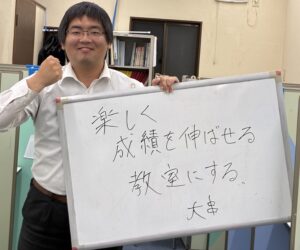 楽しく
成績を伸ばせる
教室にする、
大串